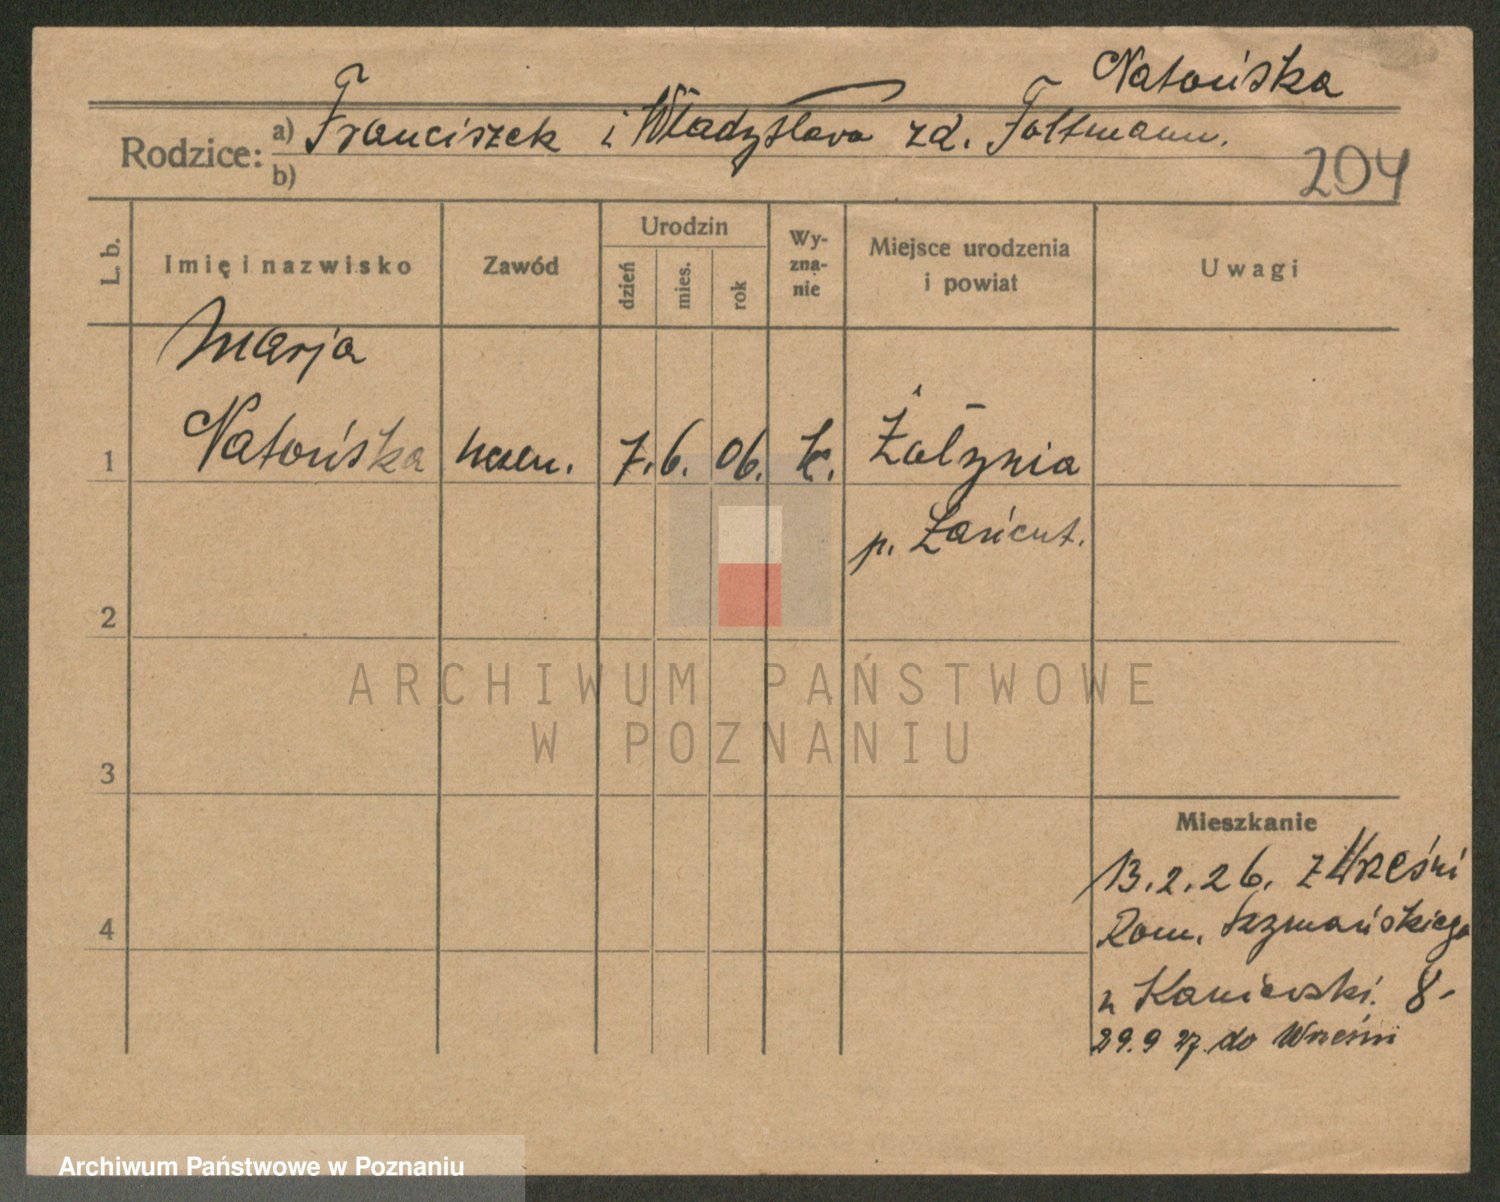 Natońska
Rodzice: a) Franciszek i Władysława zd. Foltmann.
b)
204
L. b. Imię i nazwisko Zawód Urodzin dzień mies. rok Wy-zna-nie Miejsce urodzenia i powiat Uwagi
Marja
1 Natońska uczen. 7. 6. 06. k. Żołynia
p. Łańcut.
2
ARCHIWUM PAŃSTWOWE
W POZNANIU
3
Mieszkanie
13.2.26. z Wrześni
4 Rom. Szymańskiego
u Kaniewski. 8-
29.9 27. do Wrześni
Archiwum Państwowe w Poznaniu